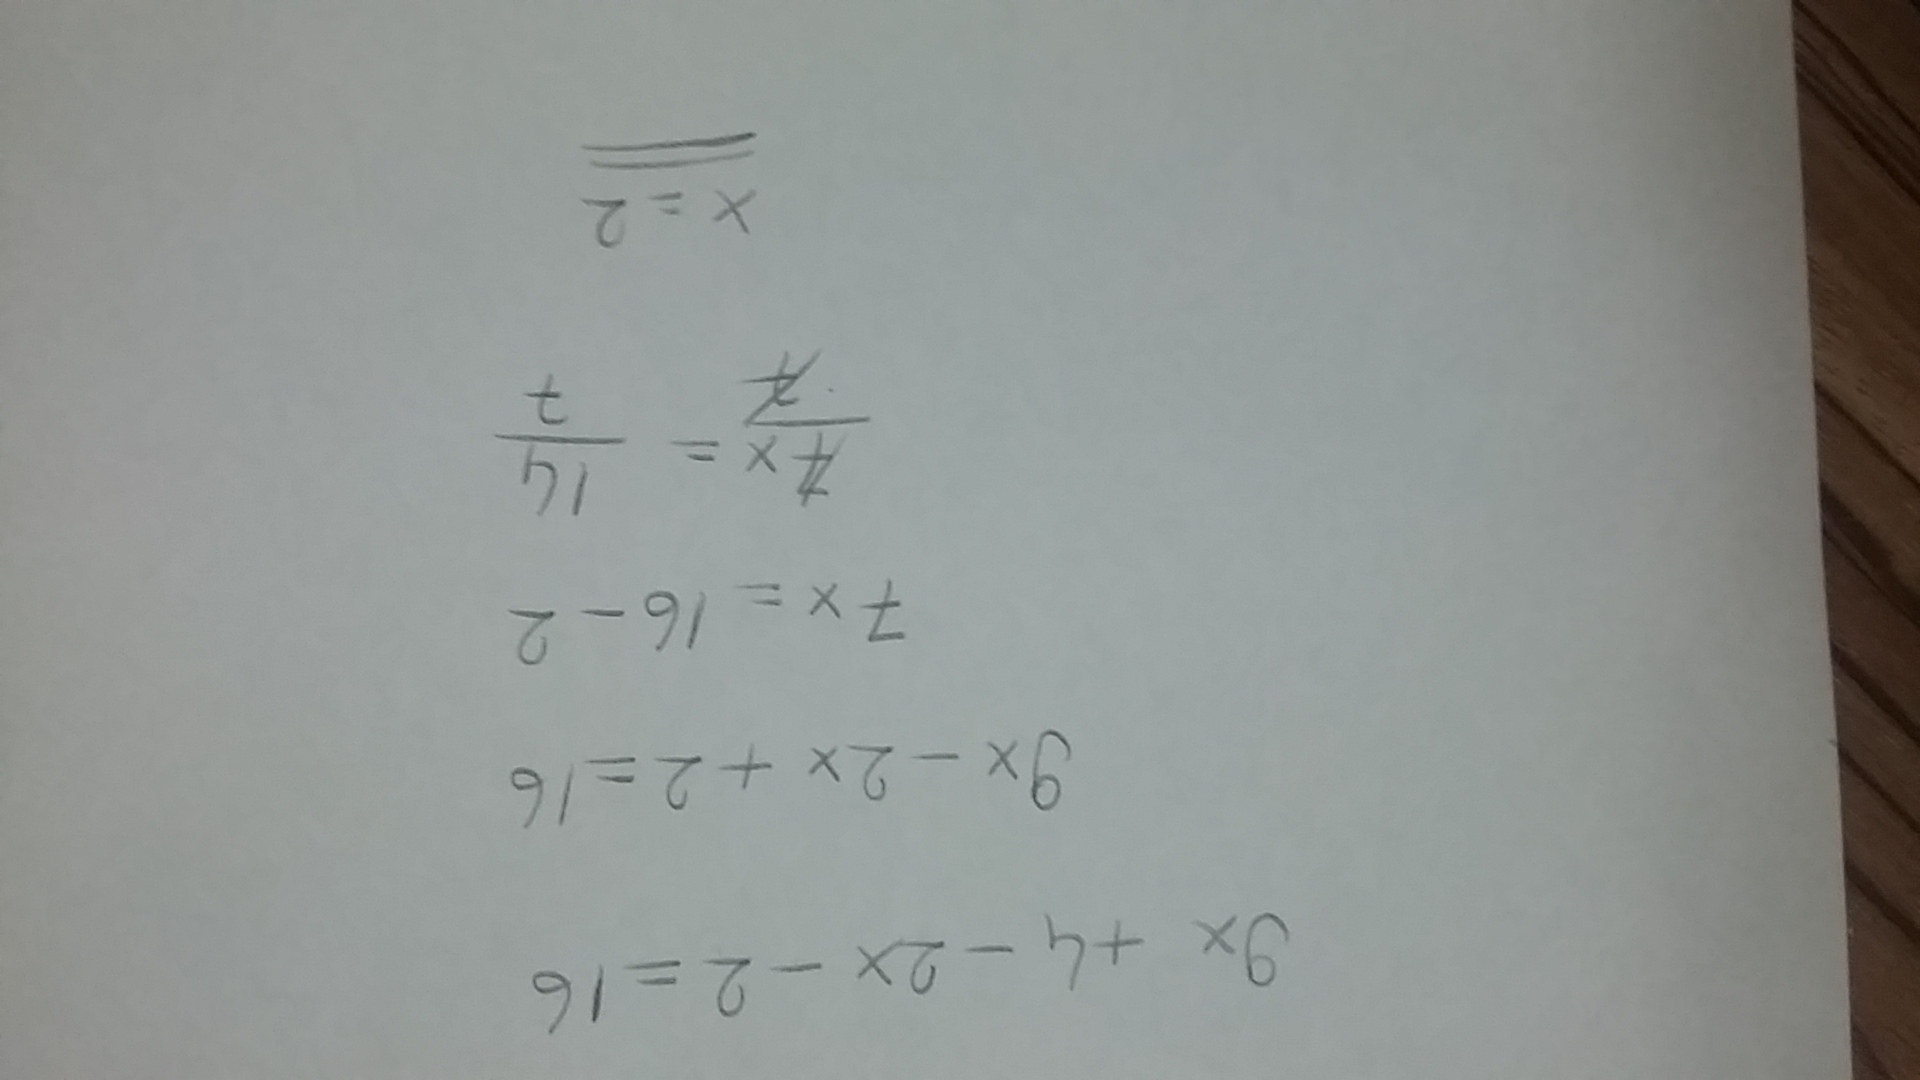 9x + 4 - 2x - 2 = 16
9x - 2x + 2 = 16
7x = 16 - 2
7x/7 = 14/7
x = 2